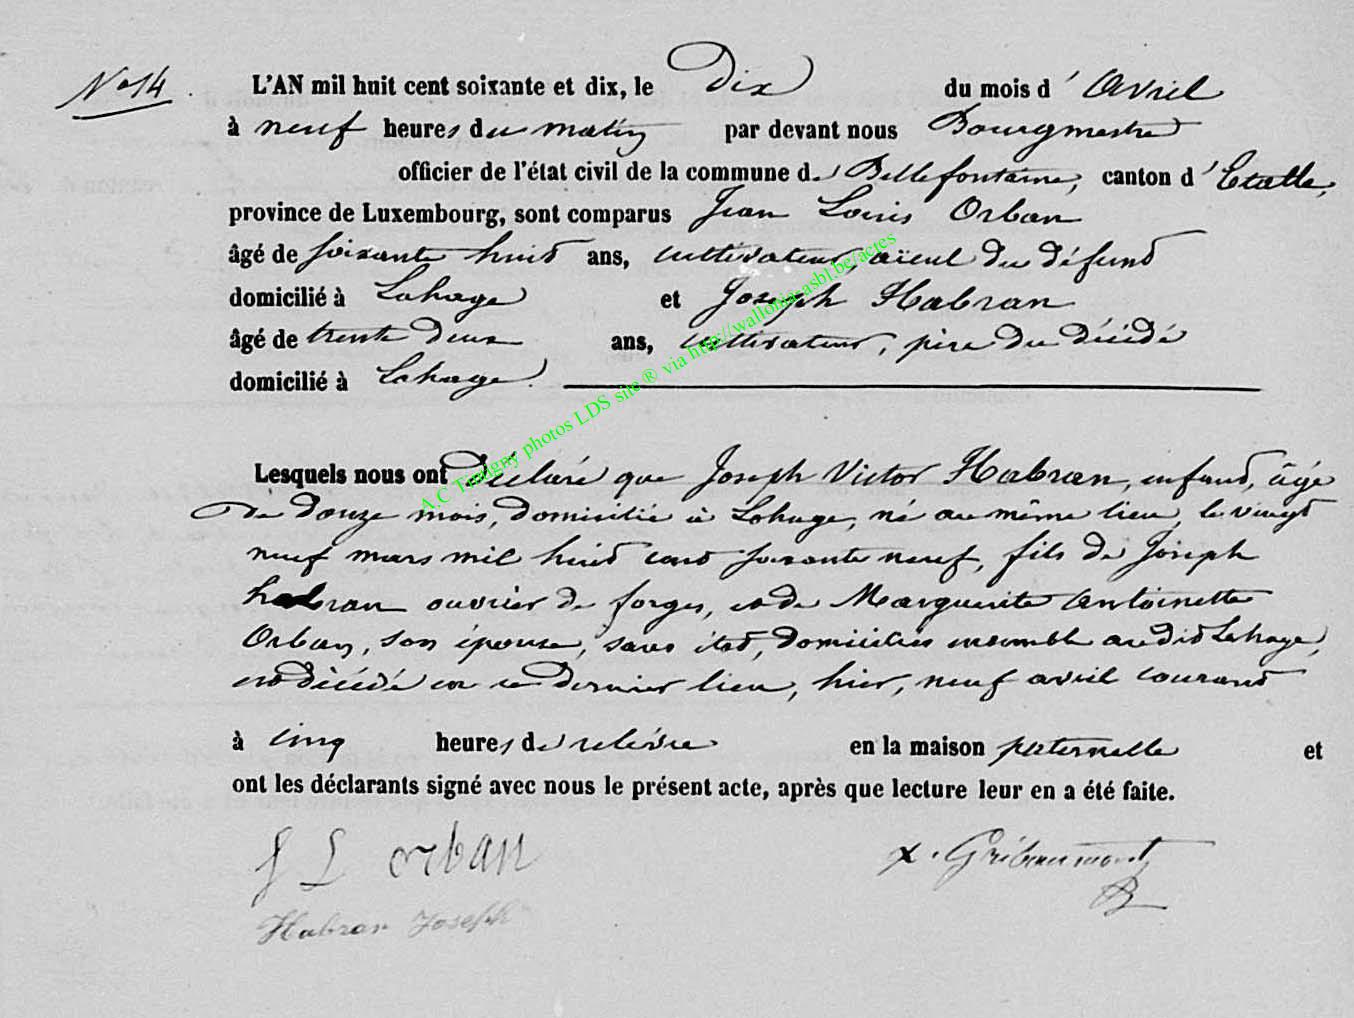 N° 14
L'AN mil huit cent soixante et dix, le Dix du mois d' Avril
à neuf heures du matin par devant nous Bourgmestre
officier de l'état civil de la commune de Bellefontaine, canton d' Etalle,
province de Luxembourg, sont comparus Jean Louis Orban
âgé de soixante huit ans, cultivateur, aïeul du défunt
domicilié à Lahage et Joseph Habran
âgé de trente deux ans, cultivateur, père du décédé
domicilié à Lahage.
Lesquels nous ont déclaré que Joseph Victor Habran, enfant, âgé
de douze mois, domicilié à Lahage, né au même lieu, le vingt
neuf mars mil huit cent soixante neuf, fils de Joseph
habran ouvrier de forges, et de Marguerite Antoinette
Orban, son épouse, sans état, domiciliés ensemble audit Lahage,
est décédé en ce dernier lieu, hier, neuf avril courant
à cinq heures de relevée en la maison paternelle et
ont les déclarants signé avec nous le présent acte, après que lecture leur en a été faite.
J L orban
Habran Joseph
x. Gribaumont
A.C Tintigny photos LDS site ® via http://wallonia-asbl.be/actes